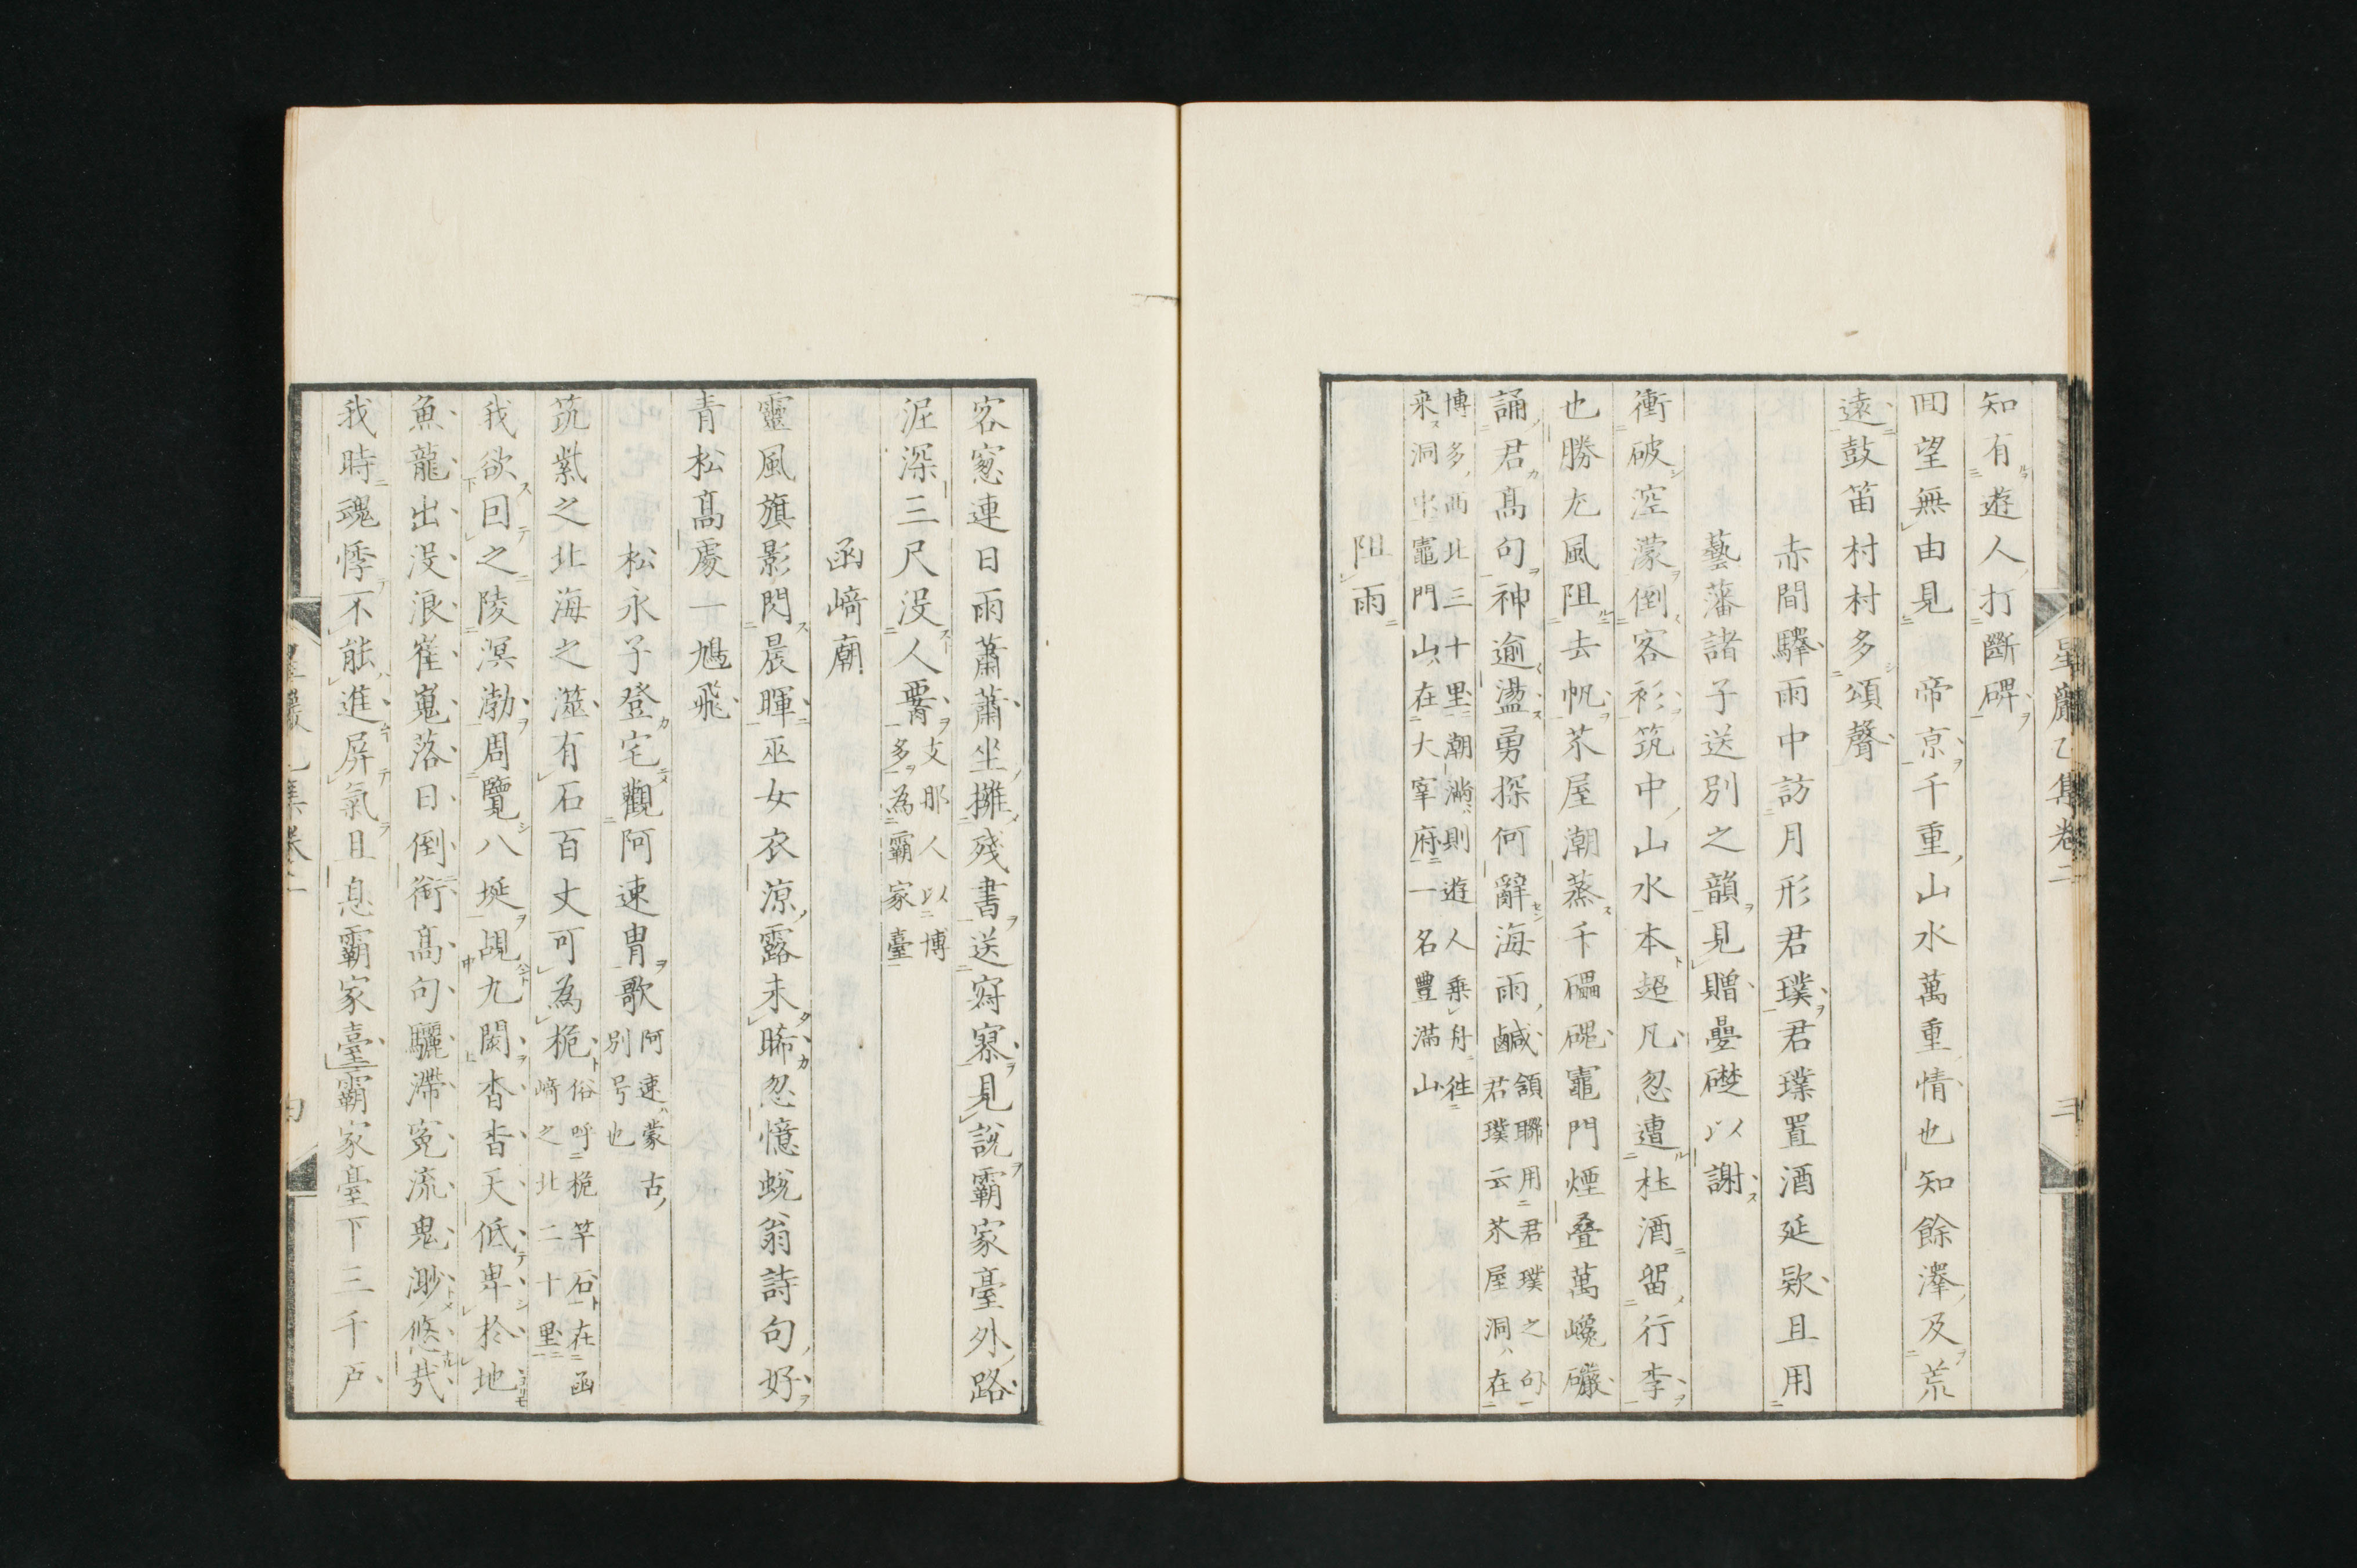 星巖乙集卷二 三
知有遊人打斷碑
回望無由見帝京千重山水萬重情也知餘澤及荒
遠鼓笛村村多頌聲
赤間驛雨中訪月形君璞君璞置酒延欵且用
藝藩諸子送別之韻見贈疊礎以謝
衝破涳濛倒客衫筑中山水本超凡忽遭杜酒留行李
也勝尤風阻去帆芥屋潮蒸千礧磈竈門煙疊萬巉巖
誦君高句神逾盪勇探何辭海雨鹹
頷聯用君璞之句
君璞云芥屋洞在
博多西北三十里潮滿則遊人乘舟徃
来洞中竈門山在大宰府一名豐滿山
阻雨
客窻連日雨蕭蕭坐擁殘書送寂寥見說霸家臺外路
泥深三尺沒人腰
支那人以博
多為霸家臺
函﨑廟
靈風旗影閃晨暉巫女衣凉露未晞忽憶蛻翁詩句好
青松高處一鳩飛
松永子登宅觀阿速胄歌
阿速蒙古
別号也
筑紫之北海之澨有石百丈可為桅
俗呼桅竿石在函
﨑之北二十里
我欲回之陵溟渤周覽八埏覘九闕杳杳天低卑於地
魚龍出沒浪崔嵬落日倒銜高句驪滯寃流鬼渺悠哉
我時魂悸不能進屏氣且息霸家臺霸家臺下三千戸